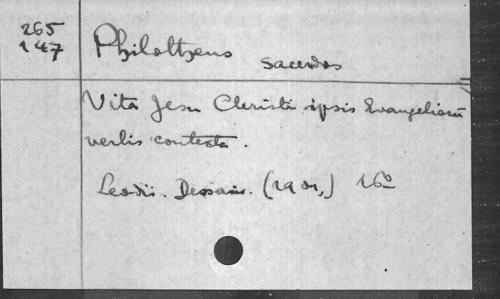 265
147
Philoltzeus sacerdos
Vita Jesu Christi ipsis Evangeliorū
verbis contexta.
Leodii. Dessain. (1901,) 16º